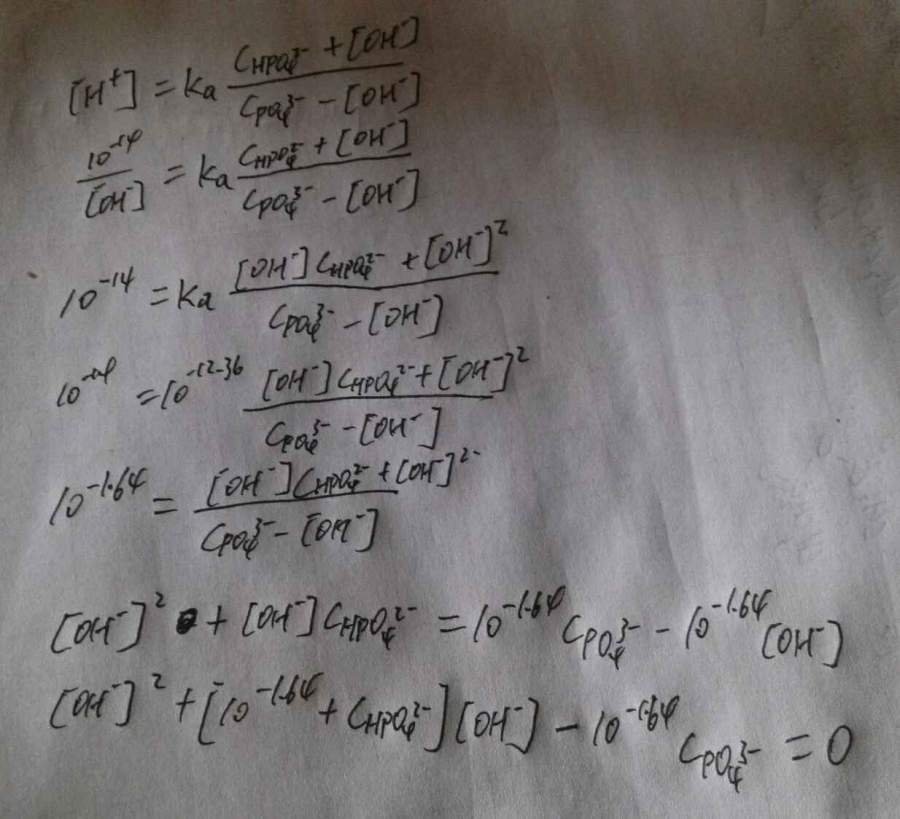 [H⁺] = Ka (C_HPO₄²⁻ + [OH⁻]) / (C_PO₄³⁻ − [OH⁻])
10⁻¹⁴ / [OH⁻] = Ka (C_HPO₄²⁻ + [OH⁻]) / (C_PO₄³⁻ − [OH⁻])
10⁻¹⁴ = Ka ([OH⁻] C_HPO₄²⁻ + [OH⁻]²) / (C_PO₄³⁻ − [OH⁻])
10⁻¹⁴ = 10^(-12.36) ([OH⁻] C_HPO₄²⁻ + [OH⁻]²) / (C_PO₄³⁻ − [OH⁻])
10^(-1.64) = ([OH⁻] C_HPO₄²⁻ + [OH⁻]²⁻) / (C_PO₄³⁻ − [OH⁻])
[OH⁻]² + [OH⁻] C_HPO₄²⁻ = 10^(-1.64) C_PO₄³⁻ − 10^(-1.64) [OH⁻]
[OH⁻]² + [10^(-1.64) + C_HPO₄²⁻] [OH⁻] − 10^(-1.64) C_PO₄³⁻ = 0